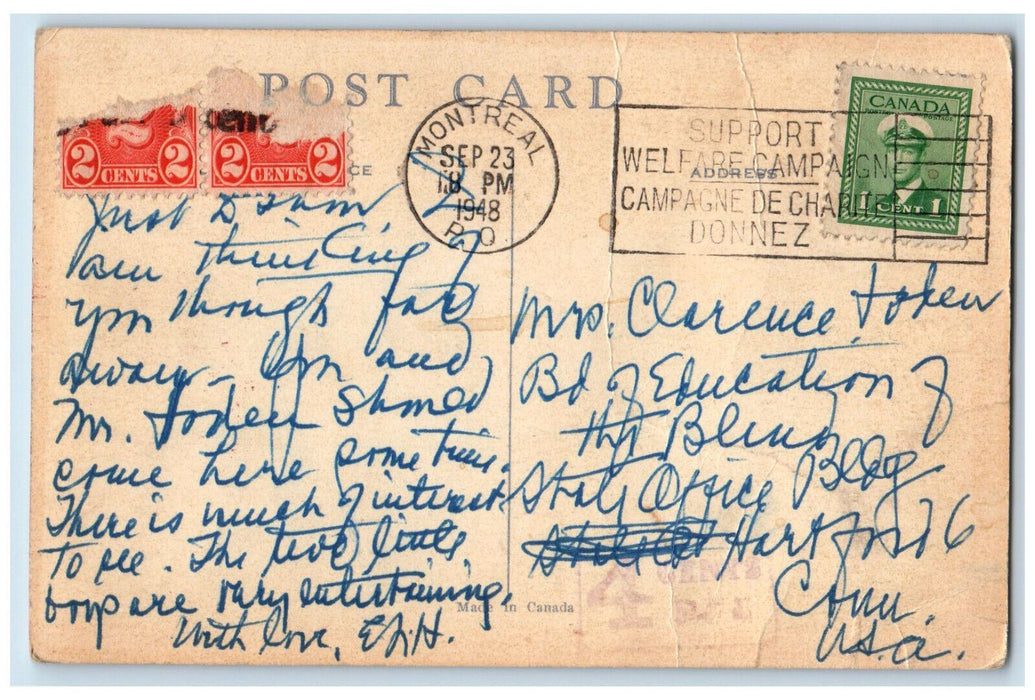 POST CARD
2 CENTS 2
2 CENTS 2
MONTREAL
SEP 23
18 PM
1948
P.O
SUPPORT
WELFARE CAMPAIGN
CAMPAGNE DE CHARITE
DONNEZ
CANADA
POSTES POSTAGE
1 CENT 1
CE
ADDRESS
Just to show I
am thinking of
you though far
away - You and
Mr. should
come here sometime.
There is much of interest
to see. The two little
boys are very entertaining.
With love, E.L.H.
Mrs. Clarence
Bd of Education of
the Blind
State Office Bldg
Hartford 6
Conn.
U.S.A.
Made in Canada